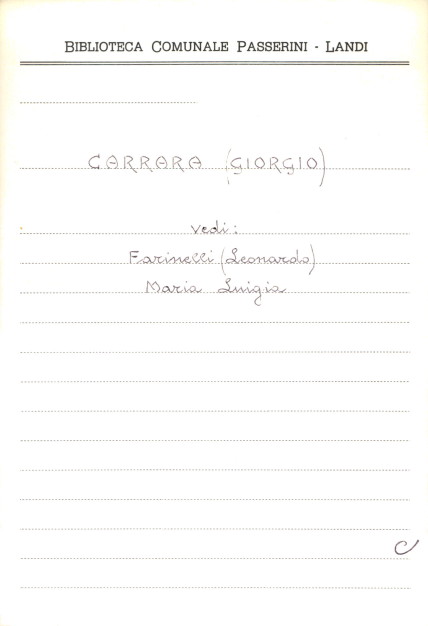 BIBLIOTECA COMUNALE PASSERINI - LANDI
CARRARA (GIORGIO)
Vedi:
Farinelli (Leonardo)
Maria Luigia
C